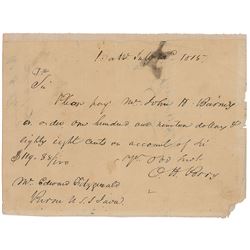 1815
Sir
Please pay Mr John H. Barney
or order one hundred and nineteen dollars &
eighty eight cents on account of
$119.88/100
yr Obd Svt
O. H. Perry
Mr. Edward Fitzgerald
Purser U.S.S. Java